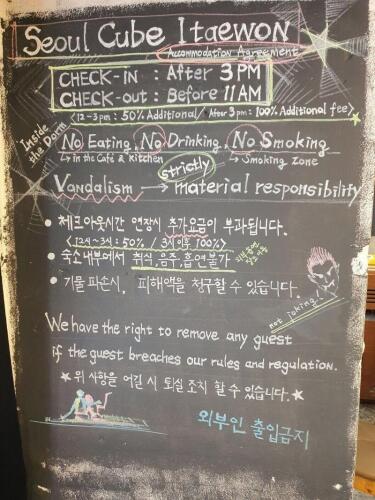 Seoul Cube Itaewon
Accommodation Agreement
CHECK-IN : After 3PM
CHECK-out : Before 11AM
<12-3pm : 50% Additional / After 3pm : 100% Additional fee>
Inside the Dorm
No Eating, No Drinking, No Smoking
↳ in the Café & Kitchen ↳ Smoking Zone
strictly
Vandalism → material responsibility
• 체크아웃시간 연장시 추가요금이 부과됩니다.
<12시~3시 : 50% / 3시이후 100%>
• 숙소내부에서 취식, 음주, 흡연불가
• 기물 파손시, 피해액을 청구할 수 있습니다.
not joking..
We have the right to remove any guest
if the guest breaches our rules and regulation.
★ 위 사항을 어길 시 퇴실 조치 할 수 있습니다. ★
외부인 출입금지